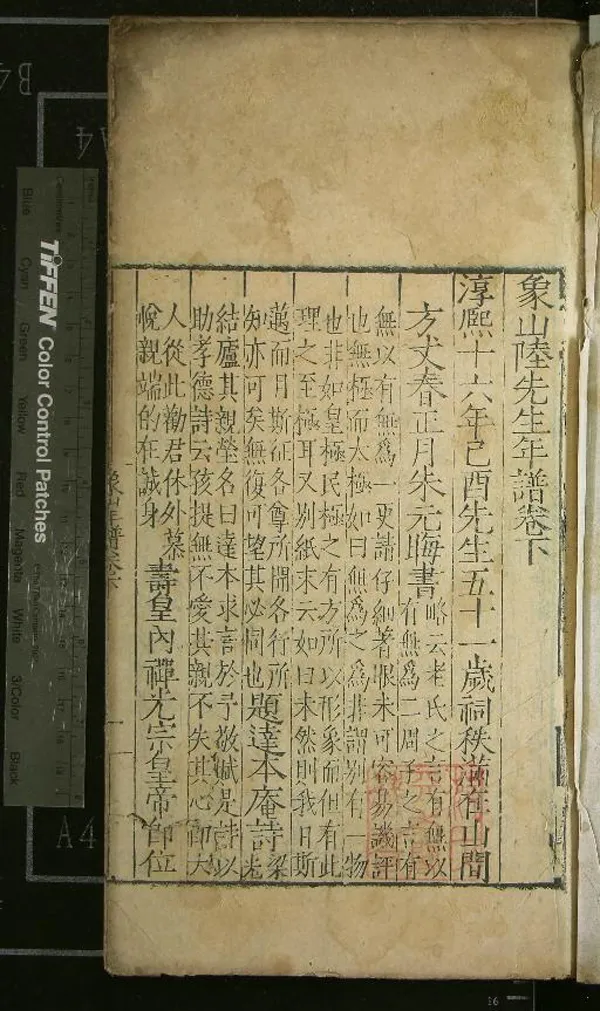 象山陸先生年譜卷下
淳熙十六年己酉先生五十一歲祠秩滿在山間
方丈春正月朱元晦書
略云老氏之言有無以
有無爲二周子之言有
無以有無爲一更請仔細著眼未可容易譏評
也無極而太極如曰無爲之爲非謂別有一物
也非如皇極民極之有方所以形象而但有此
理之至極耳又別紙末云如曰未然則我日斯
邁而月斯征各尊所聞各行所
知亦可矣無復可望其必同也
題達本庵詩
梁
結廬其親塋名曰達本求言於予敬賦是詩以
助孝德詩云孩提無不愛其親不失其心即大
人從此勸君休外慕
悅親端的在誠身
壽皇內禪光宗皇帝即位
象山年譜卷下
一
TIFFEN Color Control Patches
Blue
Cyan
Green
Yellow
Red
Magenta
White
3/Color
Black
B4
A4
A4
16